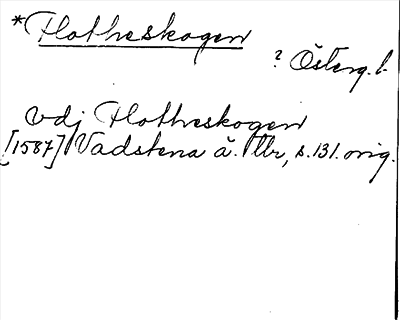 *Flotheskogen
? Österg. l.
vdj Flotheskogen
[1587] Vadstena ä. tbr, s. 131. orig.